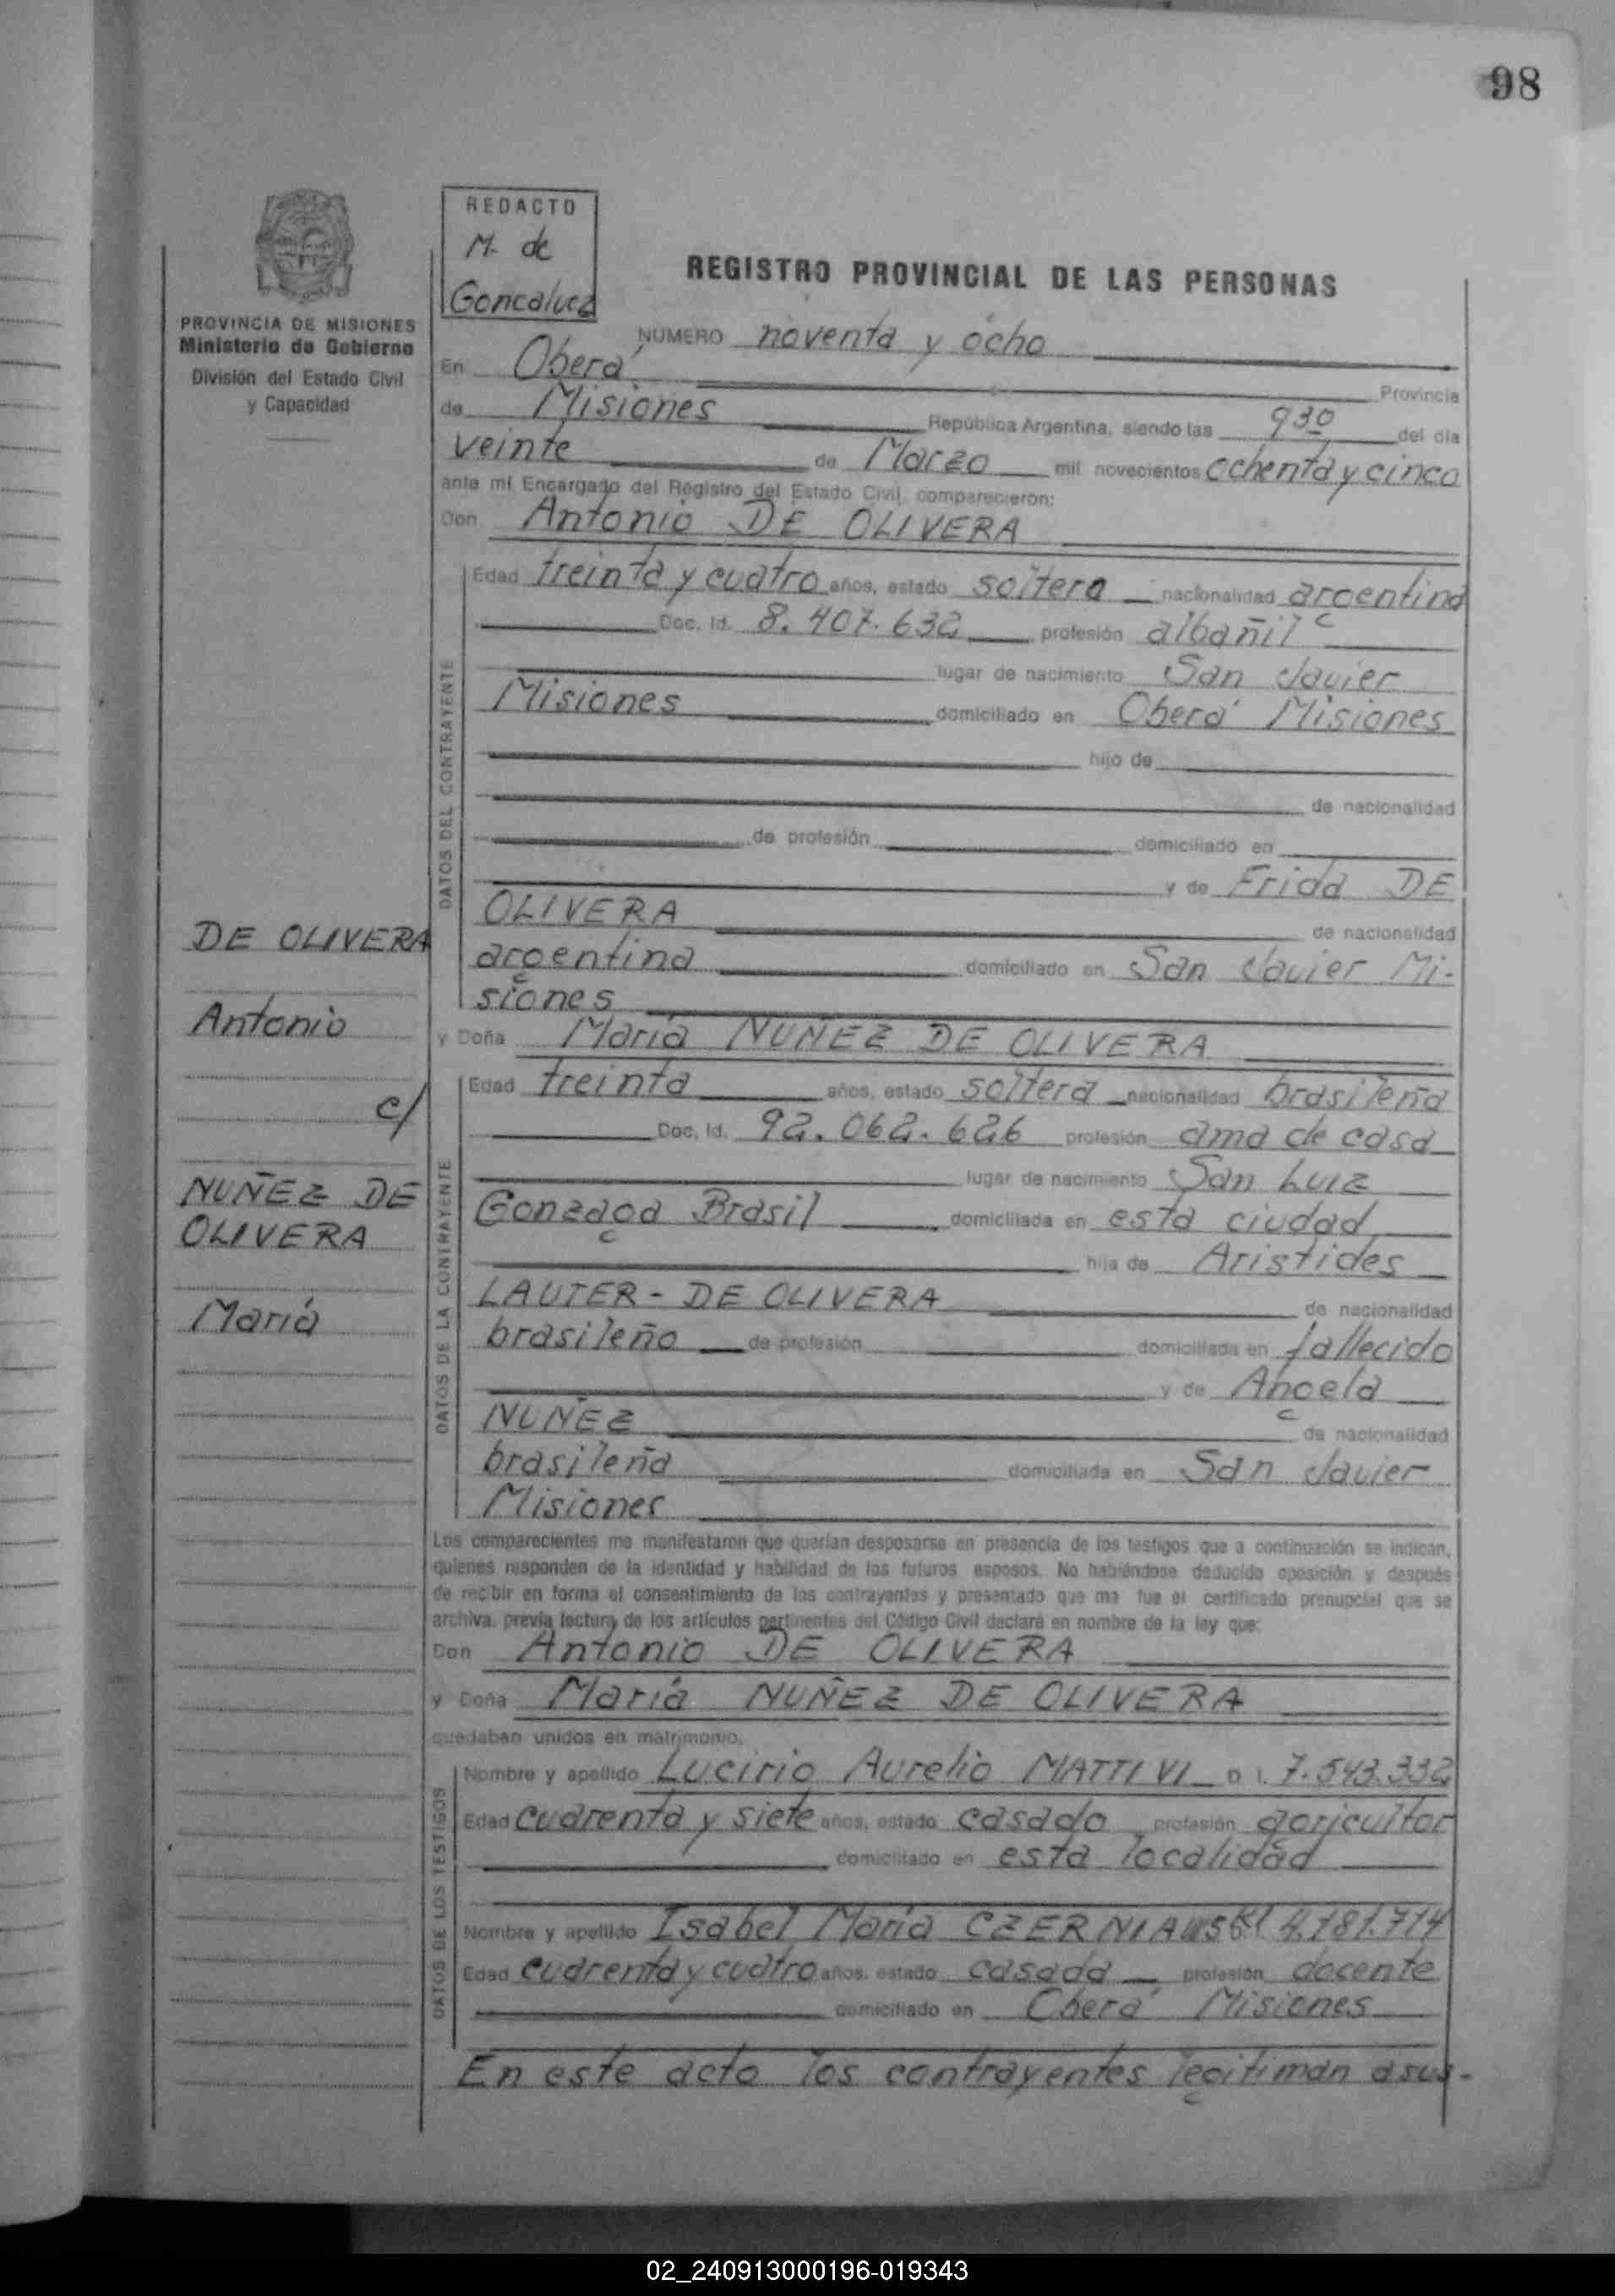 98
REDACTO
M. de
Goncalvez
PROVINCIA DE MISIONES
Ministerio de Gobierno
División del Estado Civil
y Capacidad
REGISTRO PROVINCIAL DE LAS PERSONAS
NUMERO noventa y ocho
En Oberá Provincia
de Misiones República Argentina, siendo las 9 30 del día
veinte de Marzo mil novecientos ochenta y cinco
ante mí Encargado del Registro del Estado Civil, comparecieron:
Don Antonio DE OLIVERA
DATOS DEL CONTRAYENTE
Edad treinta y cuatro años, estado soltero nacionalidad argentina
Doc. Id. 8.407.632 profesión albañil
lugar de nacimiento San Javier
Misiones domiciliado en Oberá Misiones
hijo de
de nacionalidad
de profesión domiciliado en
y de Frida DE
OLIVERA de nacionalidad
argentina domiciliado en San Javier Mi-
siones
y Doña María NUÑEZ DE OLIVERA
DATOS DE LA CONTRAYENTE
Edad treinta años, estado soltera nacionalidad brasileña
Doc. Id. 92.062.626 profesión ama de casa
lugar de nacimiento San Luiz
Gonzaga Brasil domiciliada en esta ciudad
hija de Aristides
LAUTER - DE OLIVERA de nacionalidad
brasileño de profesión domiciliada en fallecido
y de Angela
NUÑEZ de nacionalidad
brasileña domiciliada en San Javier
Misiones
DE OLIVERA
Antonio
c/
NUÑEZ DE
OLIVERA
María
Los comparecientes me manifestaron que querían desposarse en presencia de los testigos que a continuación se indican,
quienes responden de la identidad y habilidad de los futuros esposos. No habiéndose deducido oposición y después
de recibir en forma el consentimiento de los contrayentes y presentado que me fue el certificado prenupcial que se
archiva, previa lectura de los artículos pertinentes del Código Civil declaré en nombre de la ley que:
Don Antonio DE OLIVERA
y Doña María NUÑEZ DE OLIVERA
quedaban unidos en matrimonio.
DATOS DE LOS TESTIGOS
Nombre y apellido Lucirio Aurelio MATTIVI D I. 7.543.332
Edad cuarenta y siete años, estado casado profesión agricultor
domiciliado en esta localidad
Nombre y apellido Isabel María CZERNIAWSKI 4.181.714
Edad cuarenta y cuatro años, estado casada profesión docente
domiciliado en Oberá Misiones
En este acto los contrayentes legitiman a sus-
02_240913000196-019343